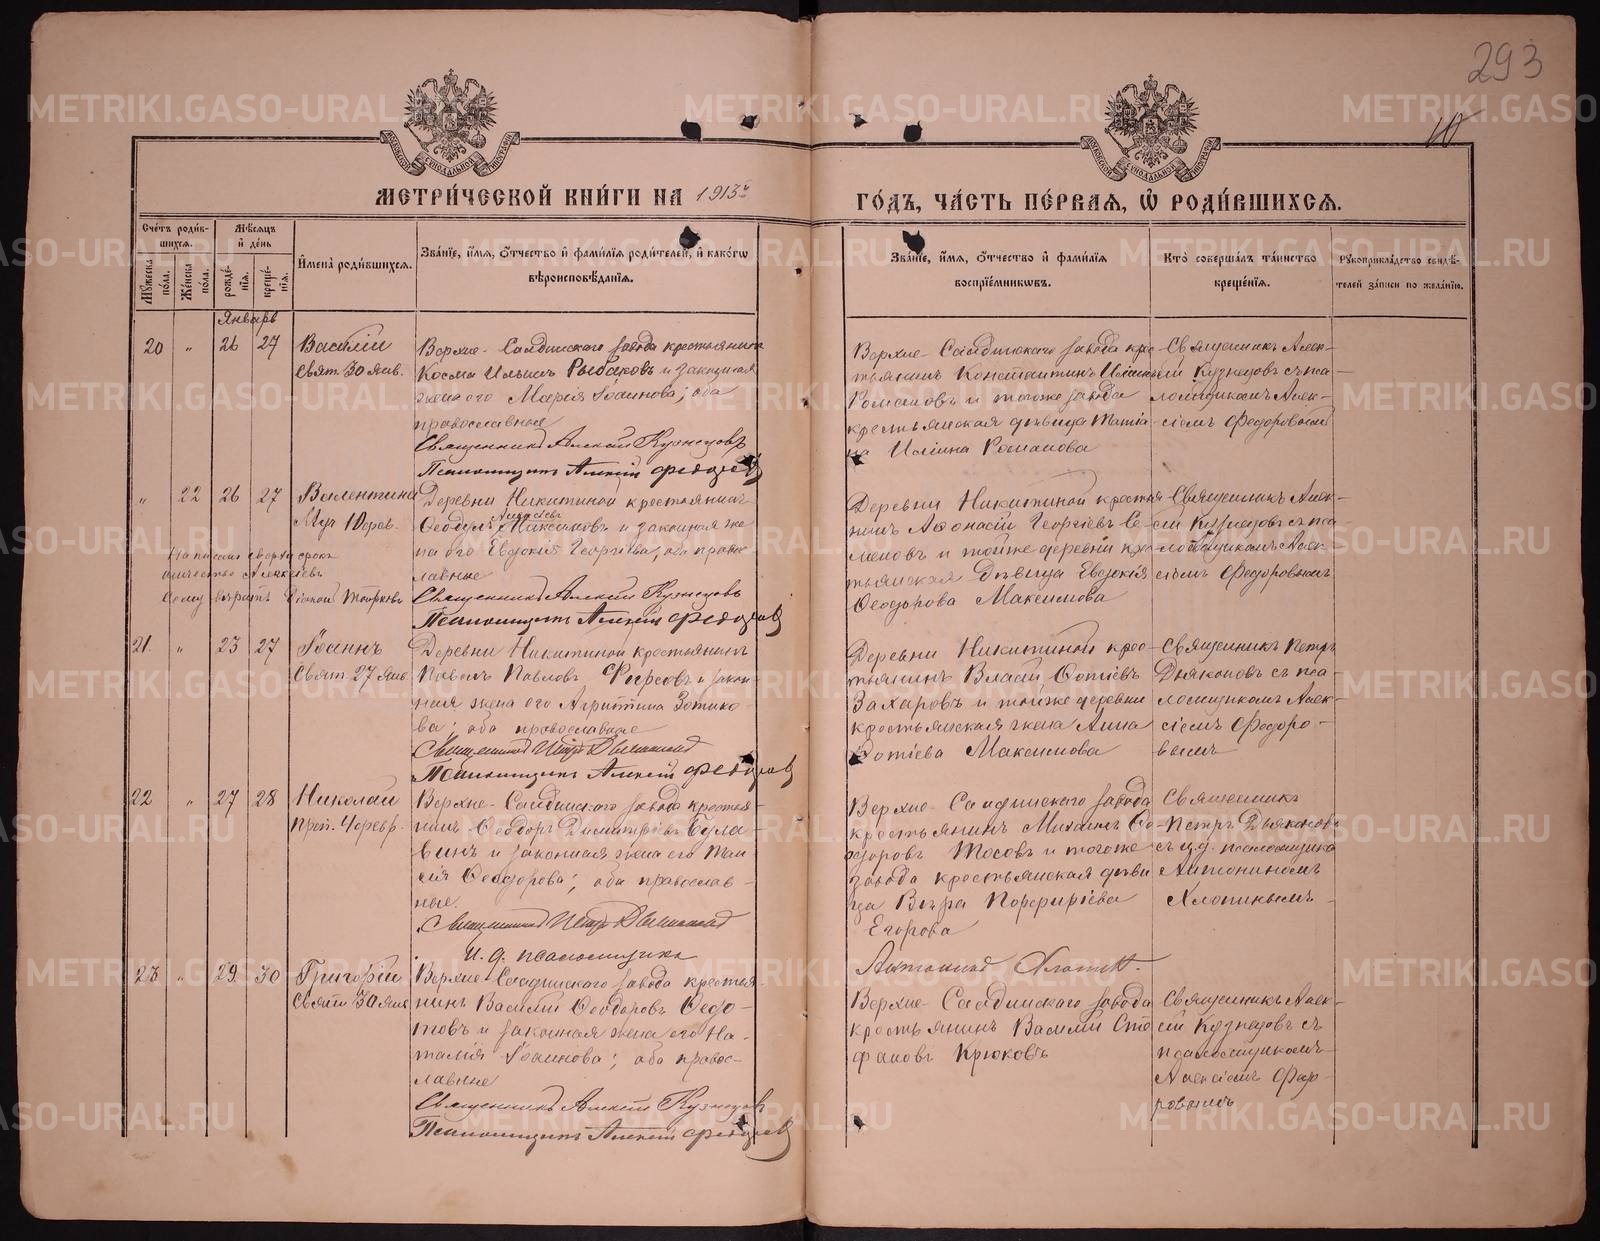 293
10
МОСКОВСКОЙ СѴНОДАЛЬНОЙ ТИПОГРАФІИ
МОСКОВСКОЙ СѴНОДАЛЬНОЙ ТИПОГРАФІИ
МЕТРИ́ЧЕСКОЙ КНИ́ГИ НА 1913й
ГО́ДЪ, ЧА́СТЬ ПЕ́РВАЯ, Ѡ РОДИ́ВШИХСЯ.
Сче́тъ роди́в-
шихся.
Му́жеска по́ла.
Же́нска по́ла.
Мѣ́сяцъ и́ де́нь
рожде́нія.
креще́нія.
И́мена̀ роди́вшихся.
Зва́ніе, и́мя, о́тчество и́ фами́лія роди́телей, и́ како́гѡ
вѣроисповѣ́данія.
Зва́ніе, и́мя, о́тчество и́ фами́лія
воспріе́мниковъ.
Кто̀ соверша́лъ та́инство
креще́нія.
Рукоприкла́дство свидѣ́-
телей за́писи по жела́нію.
Январь
20 " 26 27 Василій
Свят. 30 Янв.
Верхне-Салдинского завода крестьянинъ
Косма Ильинъ Рыбаковъ и законная
жена его Марія Іоаннова; оба
православные
Священникъ Алексій Кузнецовъ
Псаломщикъ Алексій Федоровъ
Верхне-Салдинского завода крес-
тьянинъ Константинъ Иліинъ
Романовъ и тогоже завода
крестьянская дѣвица Татіа-
на Иліина Романова
Священникъ Алек-
сій Кузнецовъ съ пса-
ломщикомъ Алек-
сіемъ Федоровымъ
" 22 26 27 Валентина
Муч 10 фев.
Написано сверху строкъ
отчество Алексіевъ
Сему вѣрить
Деревни Никитиной крестьянинъ
Алексіевъ
Максимовъ и законная же-
на его Евдокія Георгіева, оба право-
славные
Священникъ Алексій Кузнецовъ
Псаломщикъ Алексій Федоровъ
Деревни Никитиной крестья-
нинъ Афонасій Георгіевъ Се-
меновъ и тойже деревни кре-
стьянская Дѣвица Евдокія
Феодорова Максимова
Священникъ Алек-
сій Кузнецовъ съ пса-
ломщикомъ Алек-
сіемъ Федоровымъ
21. " 23 27 Іоаннъ
Свят. 27 Янв.
Деревни Никитиной крестьянинъ
Павелъ Павловъ Фирсовъ и закон-
ная жена его Агриппина Зотико-
ва; оба православные
Священникъ Петръ Дьяконовъ
Псаломщикъ Алексій Федоровъ
Деревни Никитиной крес-
тьянинъ Власій Фотіевъ
Захаровъ и тойже деревни
крестьянская жена Анна
Фотіева Максимова
Священникъ Петръ
Дьяконовъ съ пса-
ломщикомъ Алек-
сіемъ Федоро-
вымъ
22 " 27 28 Николай
Преп. 4 февр.
Верхне-Салдинского завода крестья-
нинъ Феодоръ Димитріевъ
и законная жена его Таи-
сія Феодорова; оба православ-
ные.
Священникъ Петръ Дьяконовъ
И. д. псаломщика
Антонинъ Хлопинъ.
Верхне-Салдинского завода
крестьянинъ Михаилъ Фе-
одоровъ Тосовъ и тогоже
завода крестьянская дѣви-
ца Вѣра Порфиріева
Егорова
Священникъ
Петръ Дьяконовъ
съ и.д. псаломщика
Антониномъ
Хлопинымъ
23 " 29 30 Григорій
Свят 30 Янв
Верхне-Салдинского завода крестья-
нинъ Василій Феодоровъ Федо-
товъ и законная жена его На-
талія Іоаннова; оба право-
славные
Священникъ Алексій Кузнецовъ
Псаломщикъ Алексій Федоровъ
Верхне-Салдинского завода
крестьянинъ Василій Сте-
фановъ Крюковъ
Священникъ Алек-
сій Кузнецовъ съ
псаломщикомъ
Алексіемъ Федо-
ровымъ
METRIKI.GASO-URAL.RU